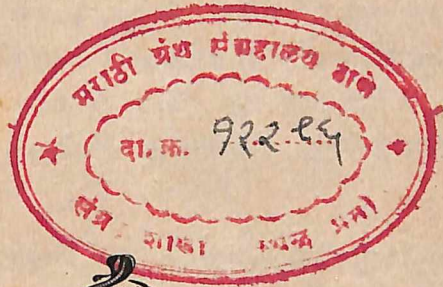 मराठी ग्रंथ संग्रहालय ठाणे
दा. क्र. १२२९६
शाखा